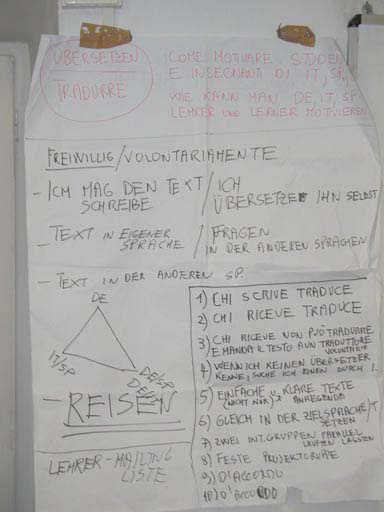 ÜBERSETZEN
TRADURRE
COME MOTIVARE STUDEN
E INSEGNANTI DI IT, SP,
WIE KANN MAN DE, IT, SP
LEHRER UND LERNER MOTIVIEREN
FREIWILLIG/VOLONTARIAMENTE
- ICH MAG DEN TEXT / ICH
SCHREIBE ÜBERSETZE IHN SELBST
- TEXT IN EIGENER / FRAGEN
SPRACHE IN DER ANDEREN SPRACHEN
- TEXT IN DER ANDEREN SP.
DE
IT/SP
DE/SP
- REISEN
LEHRER-MAILING
LISTE
1) CHI SCRIVE TRADUCE
2) CHI RICEVE TRADUCE
3) CHI RICEVE NON PUÒ TRADURRE
E MANDA IL TESTO A UN TRADUTTORE
VOLONTARIO
4) WENN ICH KEINEN ÜBERSETZER
KENNE, SUCHE ICH EINEN DURCH 1.
5) EINFACHE U. KLARE TEXTE
(NICHT NUR) ANREGENDE
6) GLEICH IN DER ZIELSPRACHE
SETZEN
7) ZWEI INT. GRUPPEN PARALLEL
LAUFEN LASSEN
8) FESTE PROJEKTGRUPPE
9) D'ACCORDO
10) D'ACCORDO